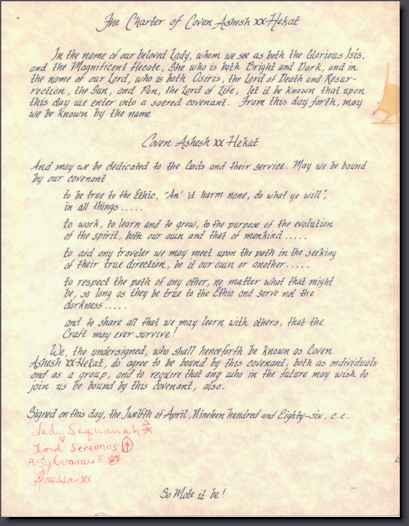 The Charter of Coven Ashesh XX Hekat
In the name of our beloved Lady, whom we see as both the Glorious Isis,
and the Magnificent Hecate, She who is both Bright and Dark, and in
the name of our Lord, who is both Osiris, the Lord of Death and Resur-
rection, the Sun, and Pan, the Lord of Life, let it be known that upon
this day we enter into a sacred covenant. From this day forth, may
we be known by the name
Coven Ashesh XX Hekat
And may we be dedicated to the Gods and their service. May we be bound
by our covenant
to be true to the Ethic, "An' it harm none, do what ye will",
in all things.....
to work, to learn and to grow, to the purpose of the evolution
of the spirit, both our own and that of mankind.....
to aid any traveler we may meet upon the path in the seeking
of their true direction, be it our own or another.....
to respect the path of any other, no matter what that might
be, so long as they be true to the Ethic and serve not the
darkness.....
and to share all that we may learn with others, that the
Craft may ever survive!
We, the undersigned, who shall henceforth be known as Coven
Ashesh XX Hekat, do agree to be bound by this covenant, both as individuals
and as a group, and to require that any who in the future may wish to
join us be bound by this covenant, also.
Signed on this day, the Twelfth of April, Nineteen Hundred and Eighty-six, c.e.
Lady
Lord
So Mote it be!